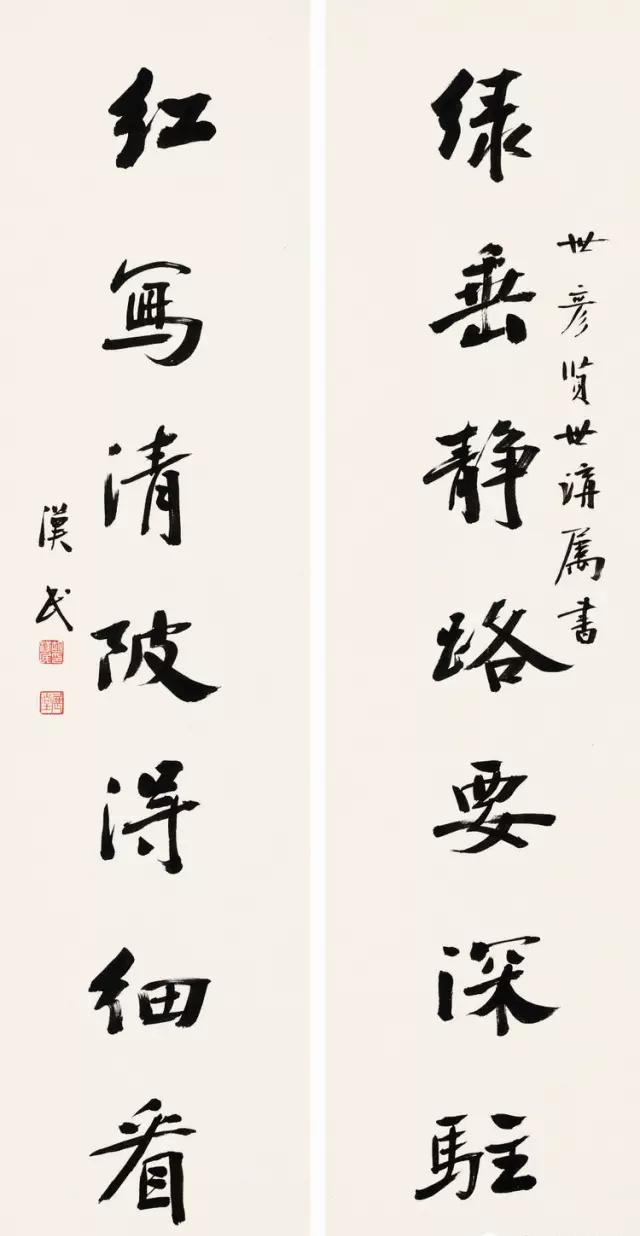 世彥賢世講屬書
綠垂靜路要深駐
紅寫清陂得細看
漢民